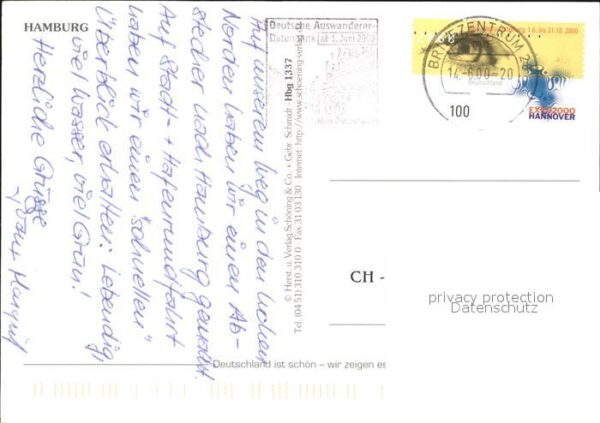 HAMBURG
Auf unserem Weg in den hohen
Norden haben wir einen Ab-
stecher nach Hamburg gemacht.
Auf Stadt- + Hafenrundfahrt
haben wir einen "schnellen"
Überblick erhalten: Lebendig,
viel Wasser, viel Grün!
Herzliche Grüsse
© Herst. u. Verlag Schöning & Co. + Gebr. Schmidt · Hbg 1337
Tel. (04 51) 310 310 0 Fax 31 03 130 · Internet: http://www.schoening-verlag
Deutsche Auswanderer-
Datenbank ab 1. Juni 2000
bis 31.10. 2000
ZENTRUM
14.-6.00-20
Deutschland
100
EXPO2000
HANNOVER
CH -
privacy protection
Datenschutz
Deutschland ist schön – wir zeigen es